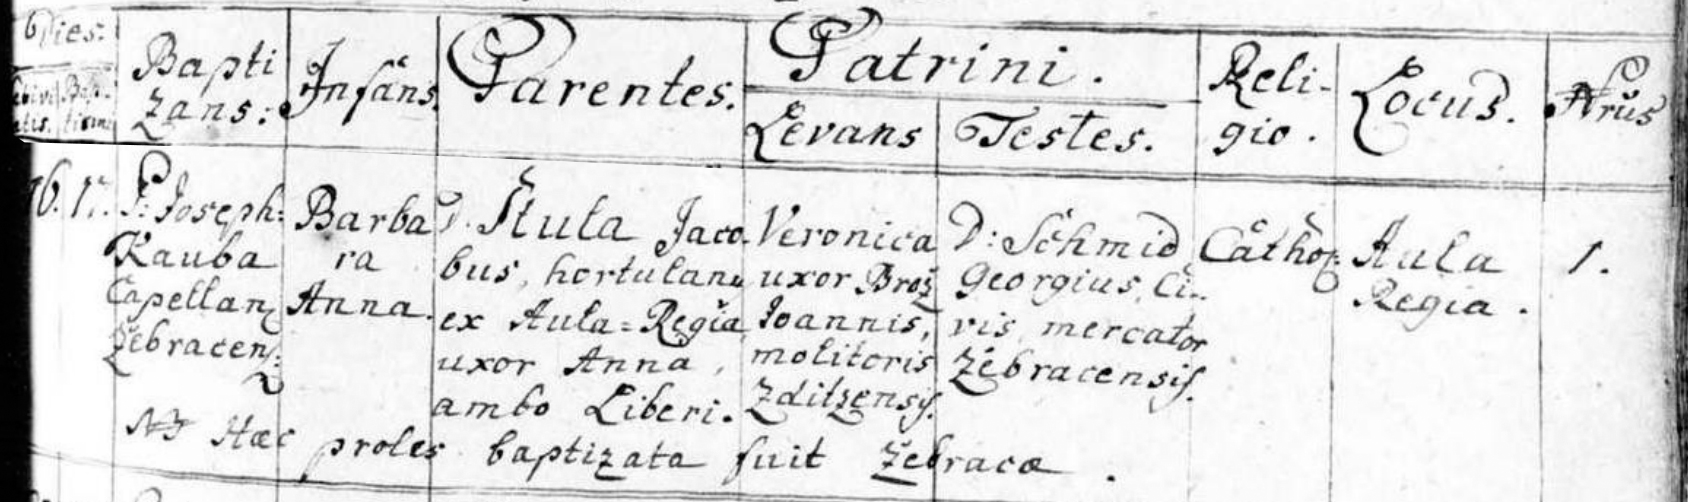 Dies:
Bapti
zans:
Infans.
Parentes.
Patrini.
Levans
Testes.
Reli-
gio.
Locus.
Nrus
16. 17.
P: Joseph:
Kauba
Capellan9
Žebracens:
Barba
ra
Anna.
D. Štula Jaco
bus, hortulan9
ex Aula=Regia
uxor Anna,
ambo Liberi.
Veronica
uxor Brož
Joannis,
molitoris
Zditzensis.
D: Schmid
Georgius, Ci-
vis, mercator
Žebracensis.
Cathol:
Aula
Regia.
1.
NB Hæc proles baptizata fuit Žebracæ.